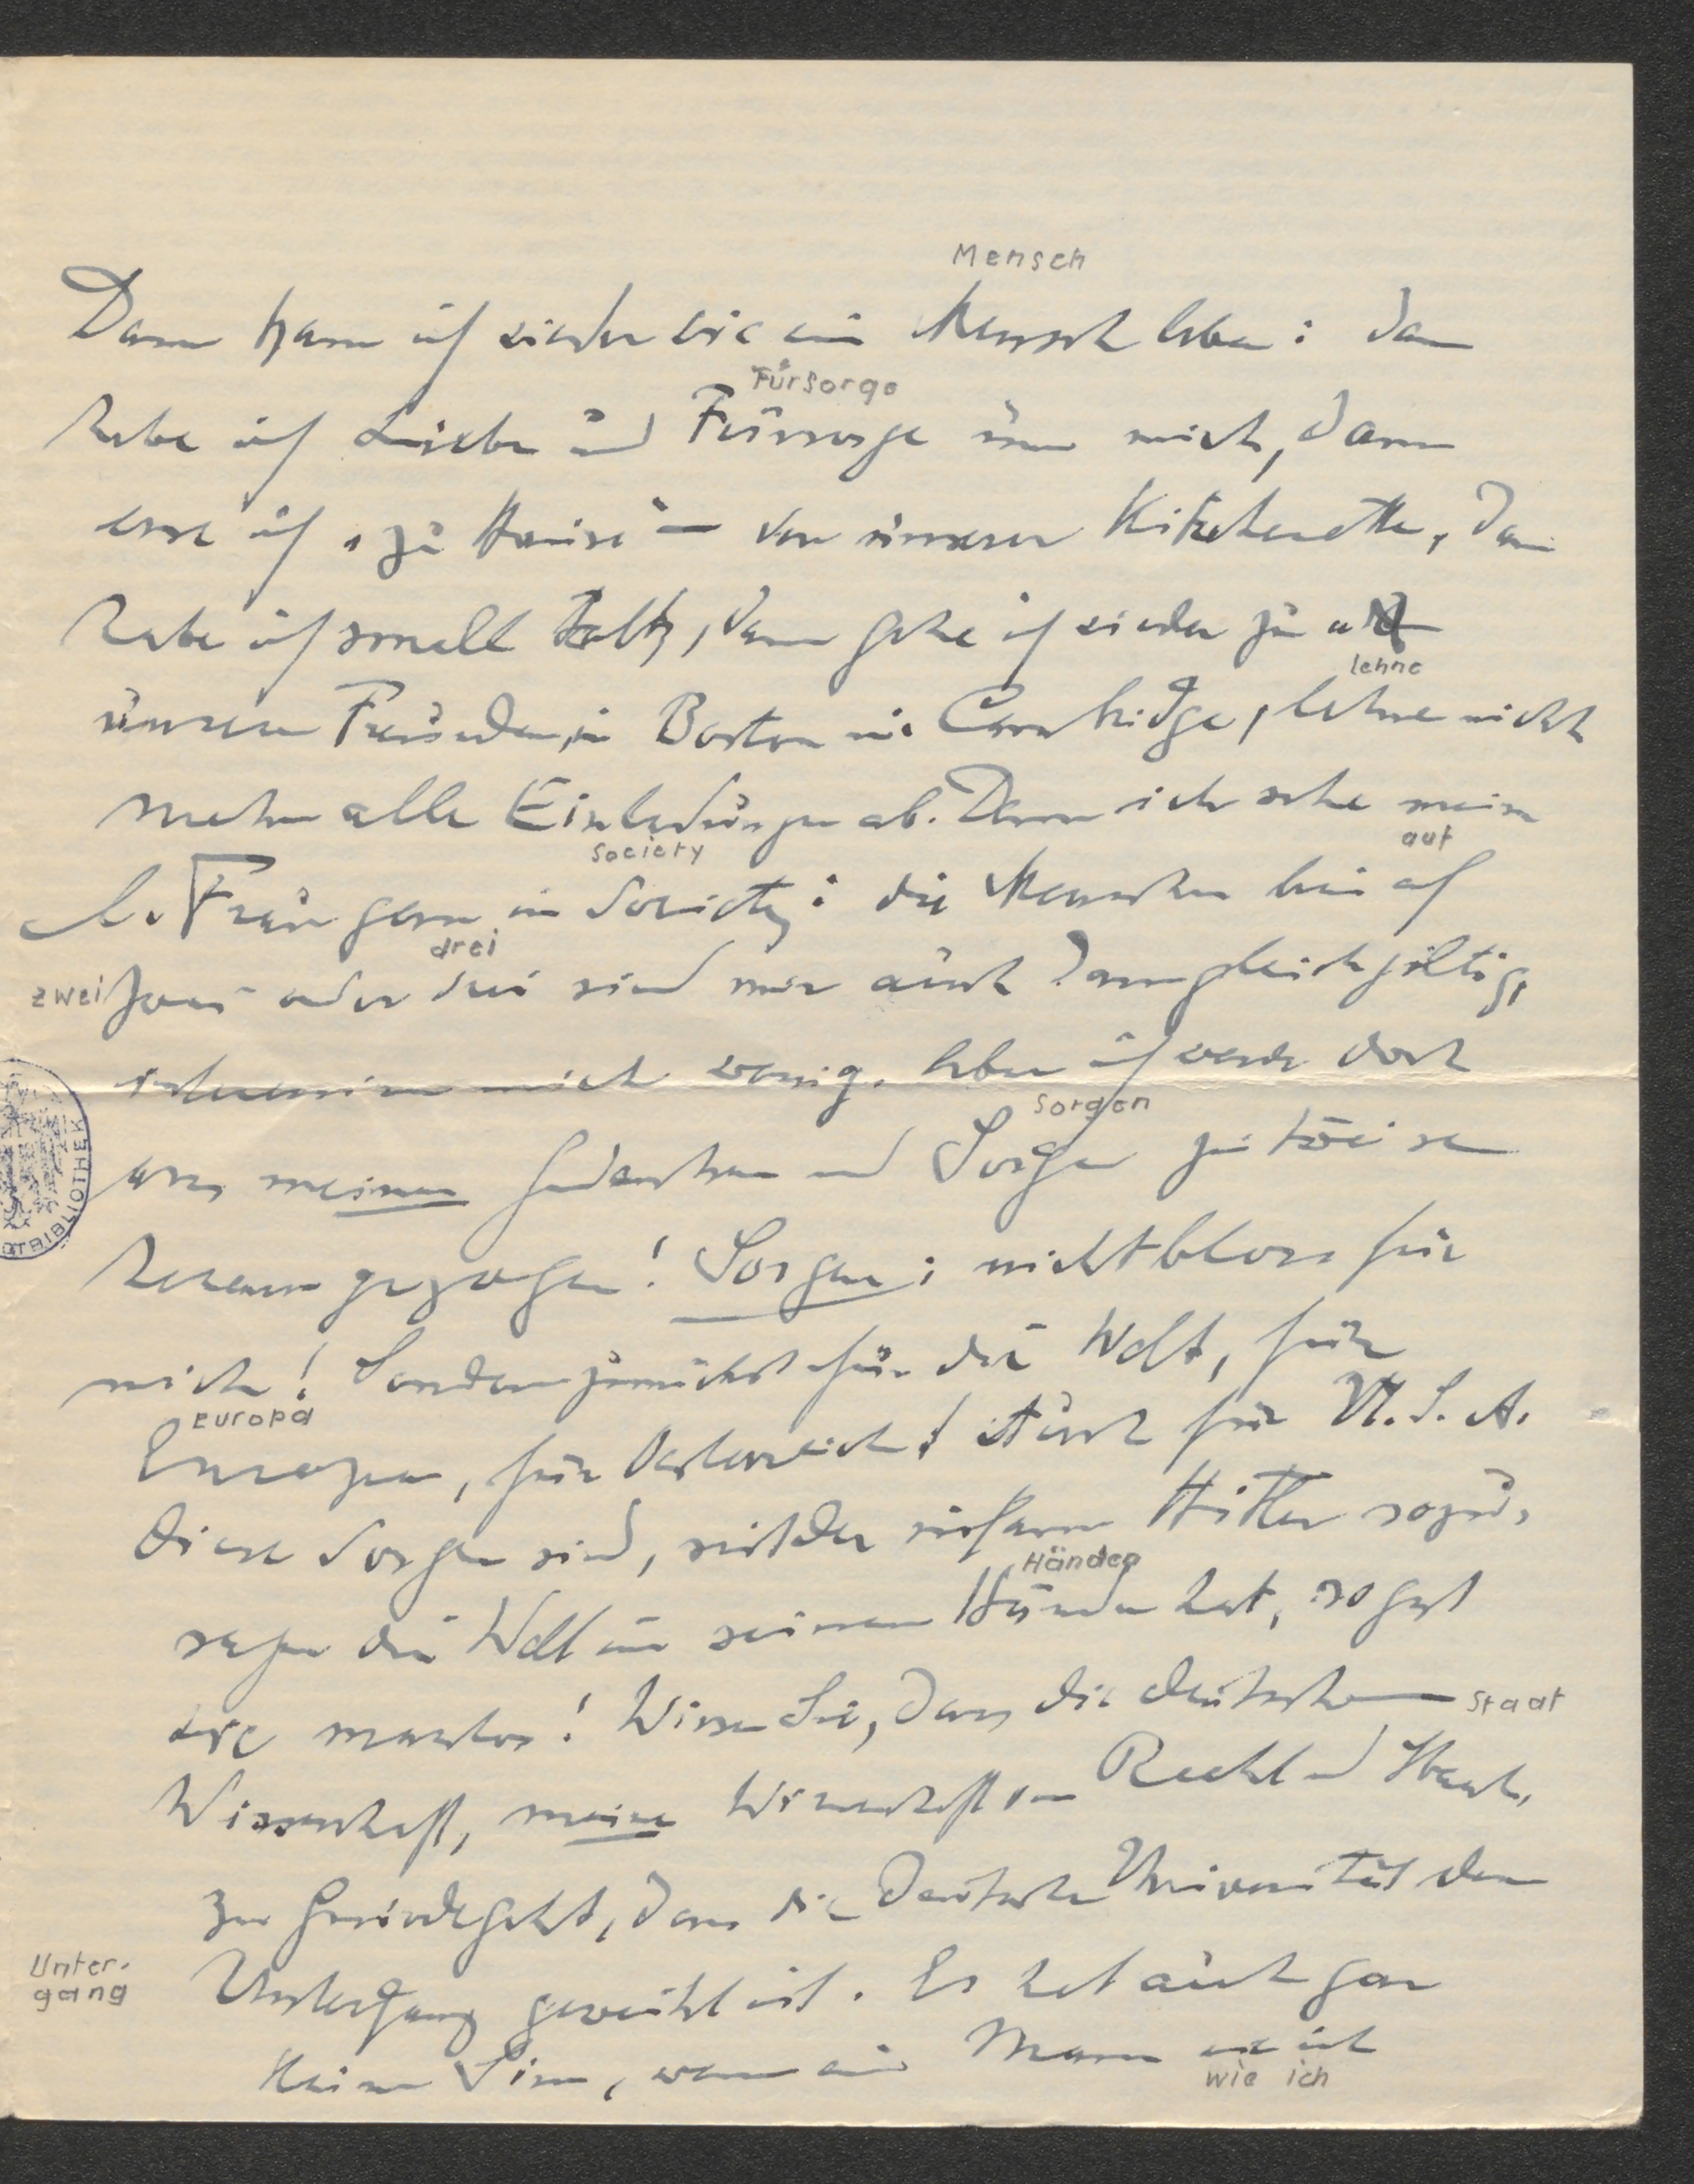 Mensch
Dann kann ich wieder wie ein Mensch leben: dann
Fürsorge
habe ich Liebe und Fürsorge um mich, dann
esse ich „zu Hause" – von unserer Kitchenette, dann
habe ich small talk, dann gehe ich wieder zu
lehne
unseren Freunden in Boston in Cambridge, lehne nicht
mehr alle Einladungen ab. Denn ich sehe meine
society
auf
l. Frau gern in Society: die Menschen bis auf
drei
zwei zwei oder drei sind mir auch dann gleichgiltig,
interessieren mich wenig. Aber ich werde doch
Sorgen
aus meinen Gedanken und Sorgen zuweisen
herausgezogen! Sorgen: nicht bloss für
mich! Sondern zunächst für die Welt, für
Europa
Europa, für Oesterreich! Auch für U.S.A.
Diese Sorgen sind, seit der infame Hitler sozu-
Händen
sagen die Welt in seinen Händen hat, so gut
wie masslos! Wissen Sie, dass die deutsche
Staat
Wissenschaft, meine Wissenschaft von Recht und Staat,
zu Grunde geht, dass die Deutsche Universität dem
Unter-
gang
Untergang geweiht ist. Es hat auch gar
keinen Sinn, wenn ein Mann wie ich
wie ich
OTBIBLIOTHEK